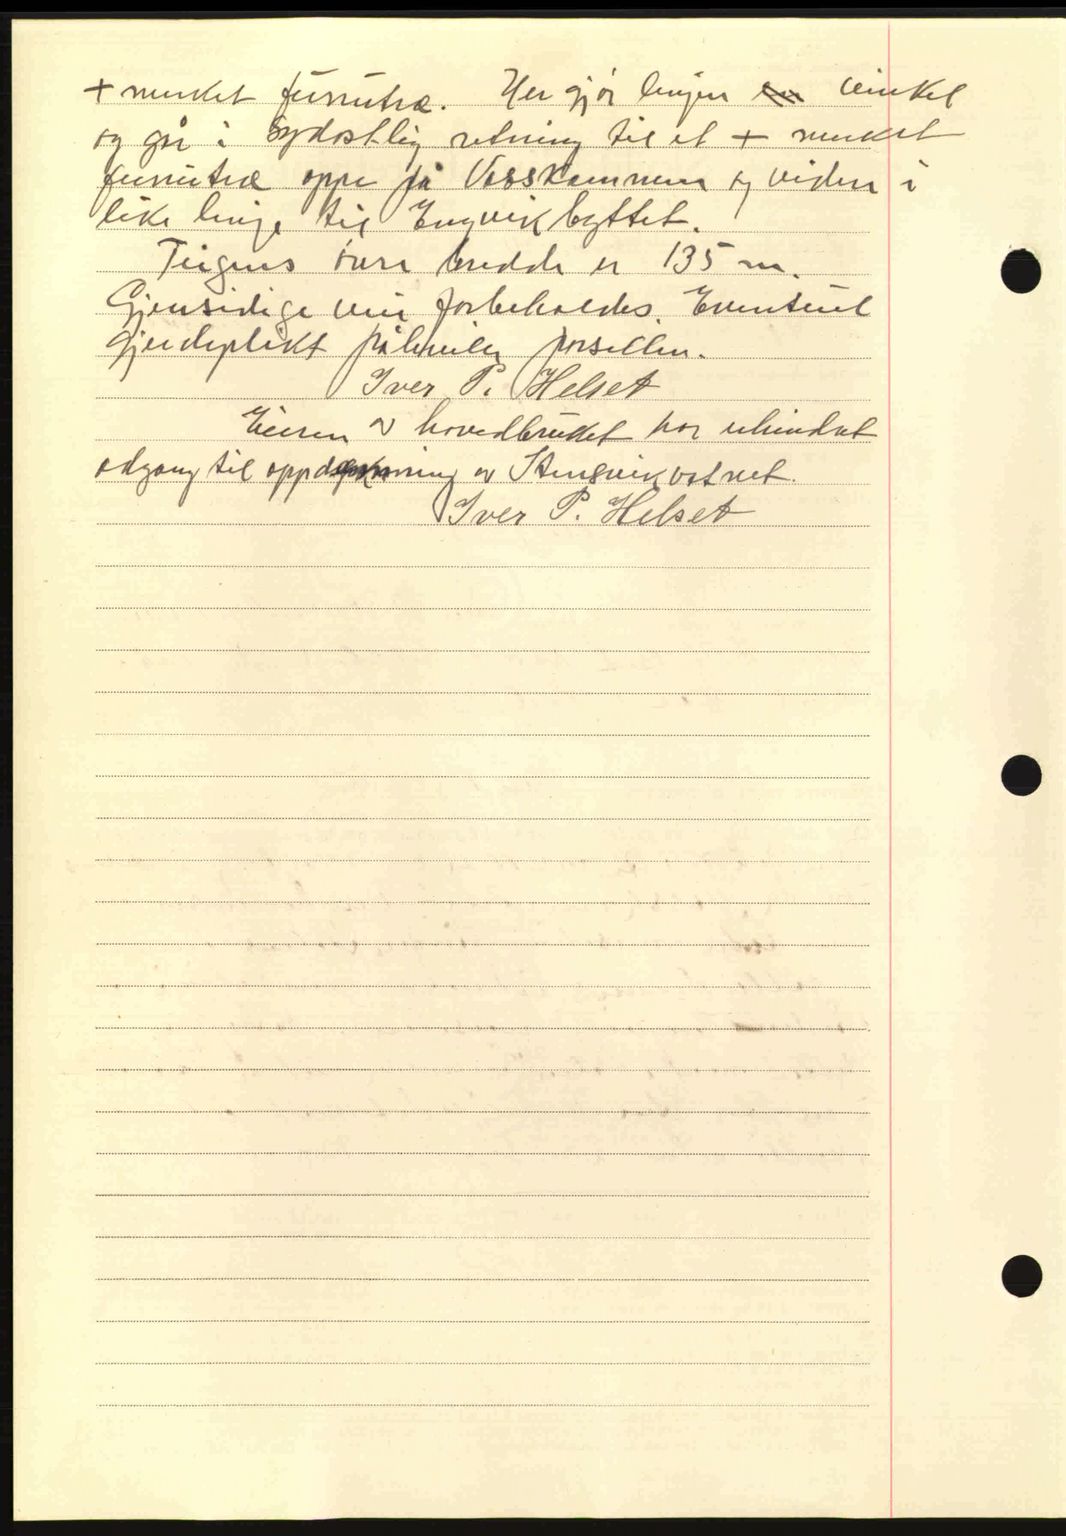 + merket furutre. Her gjør linjen vinkel
og går i sydøstlig retning til et + merket
furutre oppe på Vasskammen og videre i
like linje til Engvikbyttet.
Teigens øvre bredde er 135 m.
Gjensidige veier forbeholdes. Eventuel
gjerdeplikt påhviler parsellen.
Iver P. Helset
Eieren av hovedbruket har uhindret
adgang til oppdemning av Stensvikvatnet.
Iver P. Helset